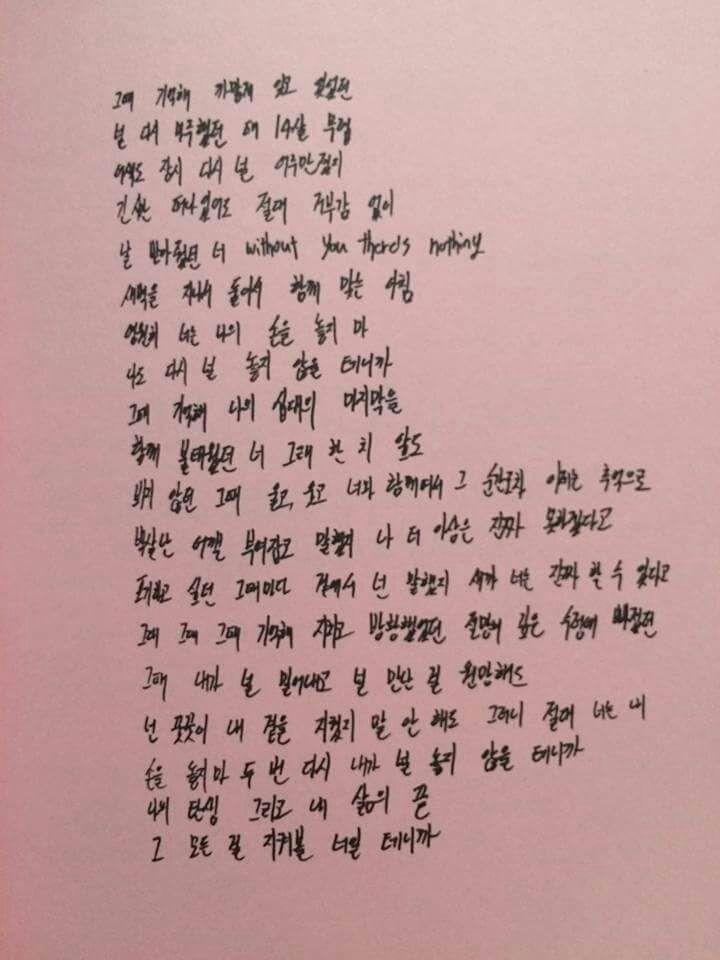 그때 기억해 까맣게 잊고 있었던
널 다시 마주했던 때 14살 무렵
어색도 잠시 다시 널 어루만졌지
긴 시간 떠나있어도 절대 거부감 없이
날 받아줬던 너 without you there's nothing
새벽을 지나서 둘이서 함께 맞는 아침
영원히 너는 나의 손을 놓지 마
나도 다시 널 놓지 않을 테니까
그때 기억해 나의 십대의 마지막을
함께 불태웠던 너 그래 한 치 앞도
뵈지 않던 그때 울고, 웃고 너와 함께여서 그 순간조차 이제는 추억으로
박살난 어깰 부여잡고 말했지 나 더 이상은 진짜 못하겠다고
포기하고 싶던 그때마다 곁에서 넌 말했지 새꺄 너는 진짜 할 수 있다고
그래 그래 그때 기억해 지치고 방황했었던 절망의 깊은 수렁에 빠졌던
그때 내가 널 밀어내고 널 만난 걸 원망해도
넌 꿋꿋이 내 곁을 지켰지 말 안 해도 그러니 절대 너는 내
손을 놓지마 두 번 다시 내가 널 놓지 않을 테니까
나의 탄생 그리고 내 삶의 끝
그 모든 걸 지켜볼 너일 테니까